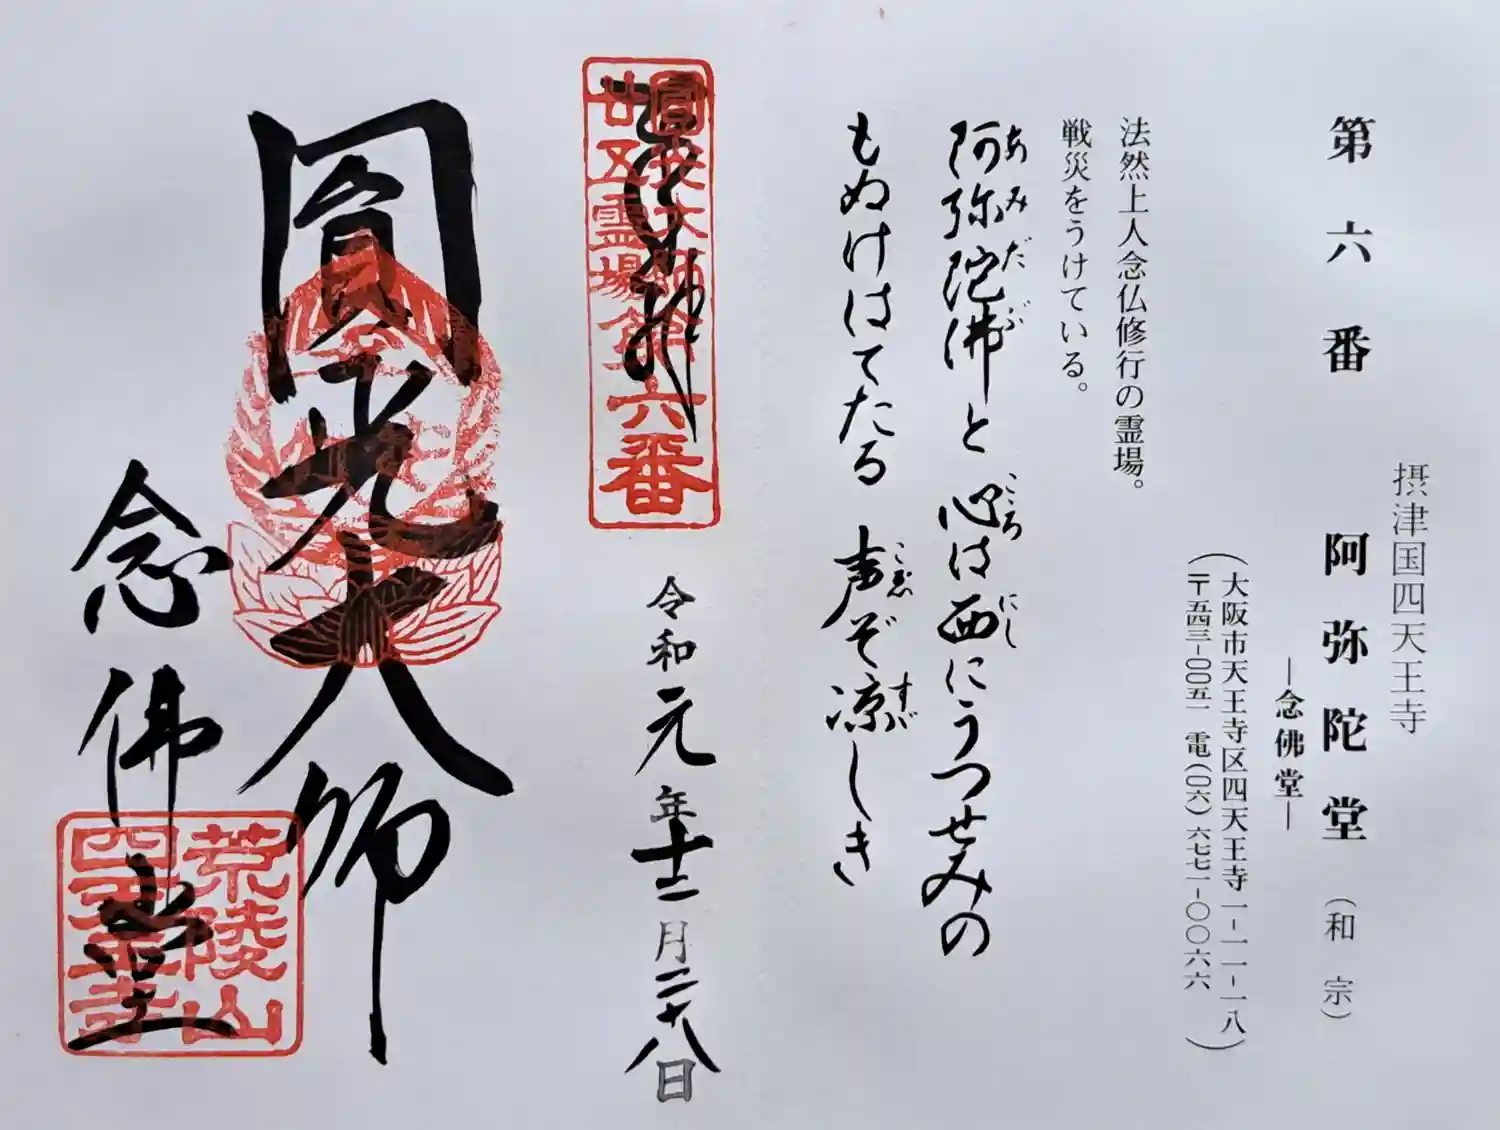 摂津国四天王寺
第六番 阿弥陀堂 (和宗)
―念佛堂―
(大阪市天王寺区四天王寺一-一一-一八
〒五四三-〇〇五一 電(〇六)六七七一-〇〇六六)
法然上人念仏修行の霊場。
戦災をうけている。
阿弥陀佛と 心は西にうつせみの
あみだぶ こころ にし
もぬけはてたる 声ぞ凉しき
こゑ すゞ
圓光大師
廿五霊場第六番
令和元年十二月二十八日
圓光大師
念佛堂
荒陵山
四天王寺